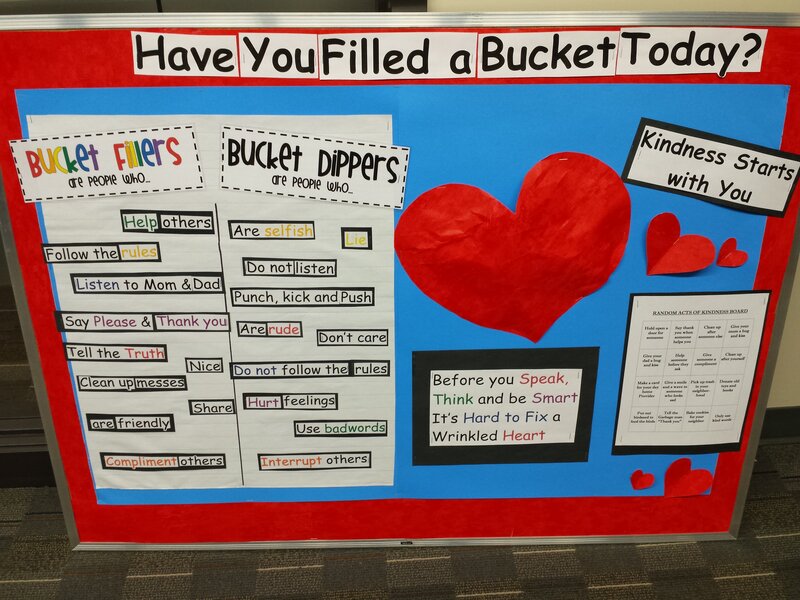 Have You Filled a Bucket Today?
Bucket Fillers
are people who...
Help others
Follow the rules
Listen to Mom & Dad
Say Please & Thank you
Tell the Truth
Nice
Clean up messes
Share
are friendly
Compliment others
Bucket Dippers
are people who...
Are selfish
Lie
Do not listen
Punch, kick and Push
Are rude
Don't care
Do not follow the rules
Hurt feelings
Use badwords
Interrupt others
Before you Speak,
Think and be Smart
It's Hard to Fix a
Wrinkled Heart
Kindness Starts
with You
RANDOM ACTS OF KINDNESS BOARD
Hold open a
door for
someone
Say thank
you when
someone
helps you
Clean up
after someone
else
Give your
mom a hug
and kiss
Give your
dad a hug and
kiss
Help
someone
before they
ask
Give
someone a
compliment
Clean up
after yourself
Make a card
for your day
home
Provider
Give a smile
and a wave to
someone
who looks
sad
Pick up trash
in your
neighbor-
hood
Donate old
toys and
books
Put out
birdseed to
feed the birds
Tell the
Garbage man
"Thank you"
Bake cookies
for your
neighbor
Only use
kind words